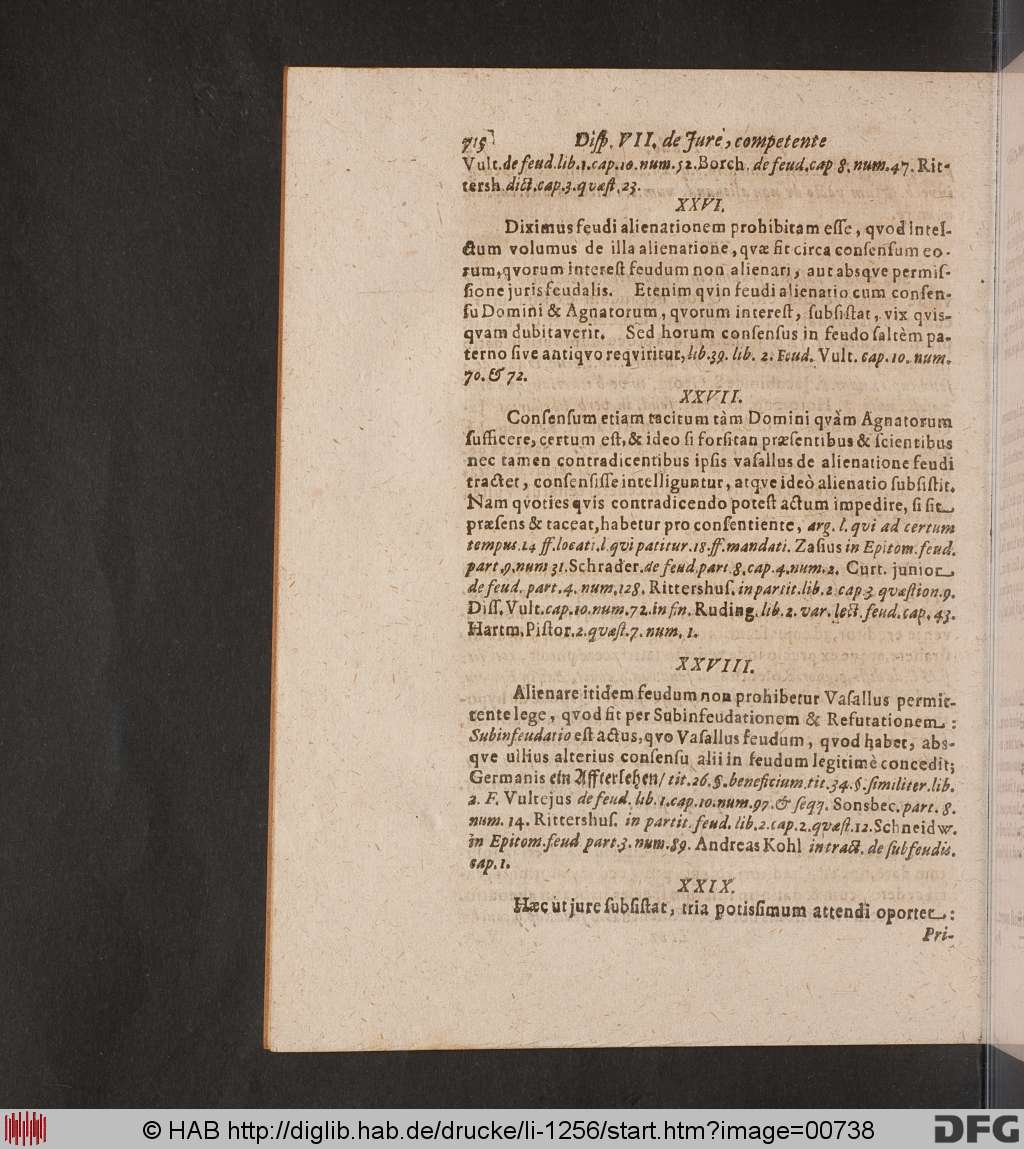 715 Disp. VII. de Jure, competente
Vult. de feud. lib. 1. cap. 10. num. 52. Borch. de feud. cap 8. num. 47. Rit-
tersh. dict. cap. 3. quæst. 23.
XXVI.
Diximus feudi alienationem prohibitam esse, qvod intel-
lectum volumus de illa alienatione, qvæ fit circa consensum eo-
rum, qvorum interest feudum non alienari, aut absqve permis-
sione juris feudalis. Etenim qvin feudi alienatio cum consen-
su Domini & Agnatorum, qvorum interest, subsistat, vix qvis-
qvam dubitaverit. Sed horum consensus in feudo saltèm pa-
terno sive antiqvo reqviritur, lib. 39. lib. 2. Feud. Vult. cap. 10. num.
70. & 72.
XXVII.
Consensum etiam tacitum tàm Domini qvàm Agnatorum
sufficere, certum est, & ideo si forsitan præsentibus & scientibus
nec tamen contradicentibus ipsis vasallus de alienatione feudi
tractet, consensisse intelliguntur, atqve ideò alienatio subsistit.
Nam qvoties qvis contradicendo potest actum impedire, si sit
præsens & taceat, habetur pro consentiente, arg. l. qvi ad certum
tempus. 14 ff. locati. l. qvi patitur. 18. ff. mandati. Zasius in Epitom. feud.
part. 9. num 31. Schrader. de feud. part 8. cap. 4. num. 2. Curt. junior
de feud. part. 4. num. 128. Rittershus. in partit. lib. 2 cap 3 quæstion. 9.
Diss. Vult. cap. 10. num. 72. in fin. Ruding. lib. 2. var. lect. feud. cap. 43.
Hartm. Pistor. 2. quæst. 7. num. 1.
XXVIII.
Alienare itidem feudum non prohibetur Vasallus permit-
tente lege, qvod fit per Subinfeudationem & Refutationem:
Subinfeudatio est actus, qvo Vasallus feudum, qvod habet, abs-
qve ullius alterius consensu alii in feudum legitimè concedit;
Germanis ein Affterlehen/ tit. 26. §. beneficium. tit. 34. §. similiter. lib.
2. F. Vultejus de feud. lib. 1. cap. 10. num. 97. & seqq. Sonsbec. part. 8.
num. 14. Rittershus. in partit. feud. lib. 2. cap. 2. quæst. 12. Schneidw.
in Epitom. feud part 3. num. 89. Andreas Kohl in tract. de subfeudis.
cap. 1.
XXIX.
Hæc ut jure subsistat, tria potissimum attendi oportet:
Pri-
© HAB http://diglib.hab.de/drucke/li-1256/start.htm?image=00738
DFG